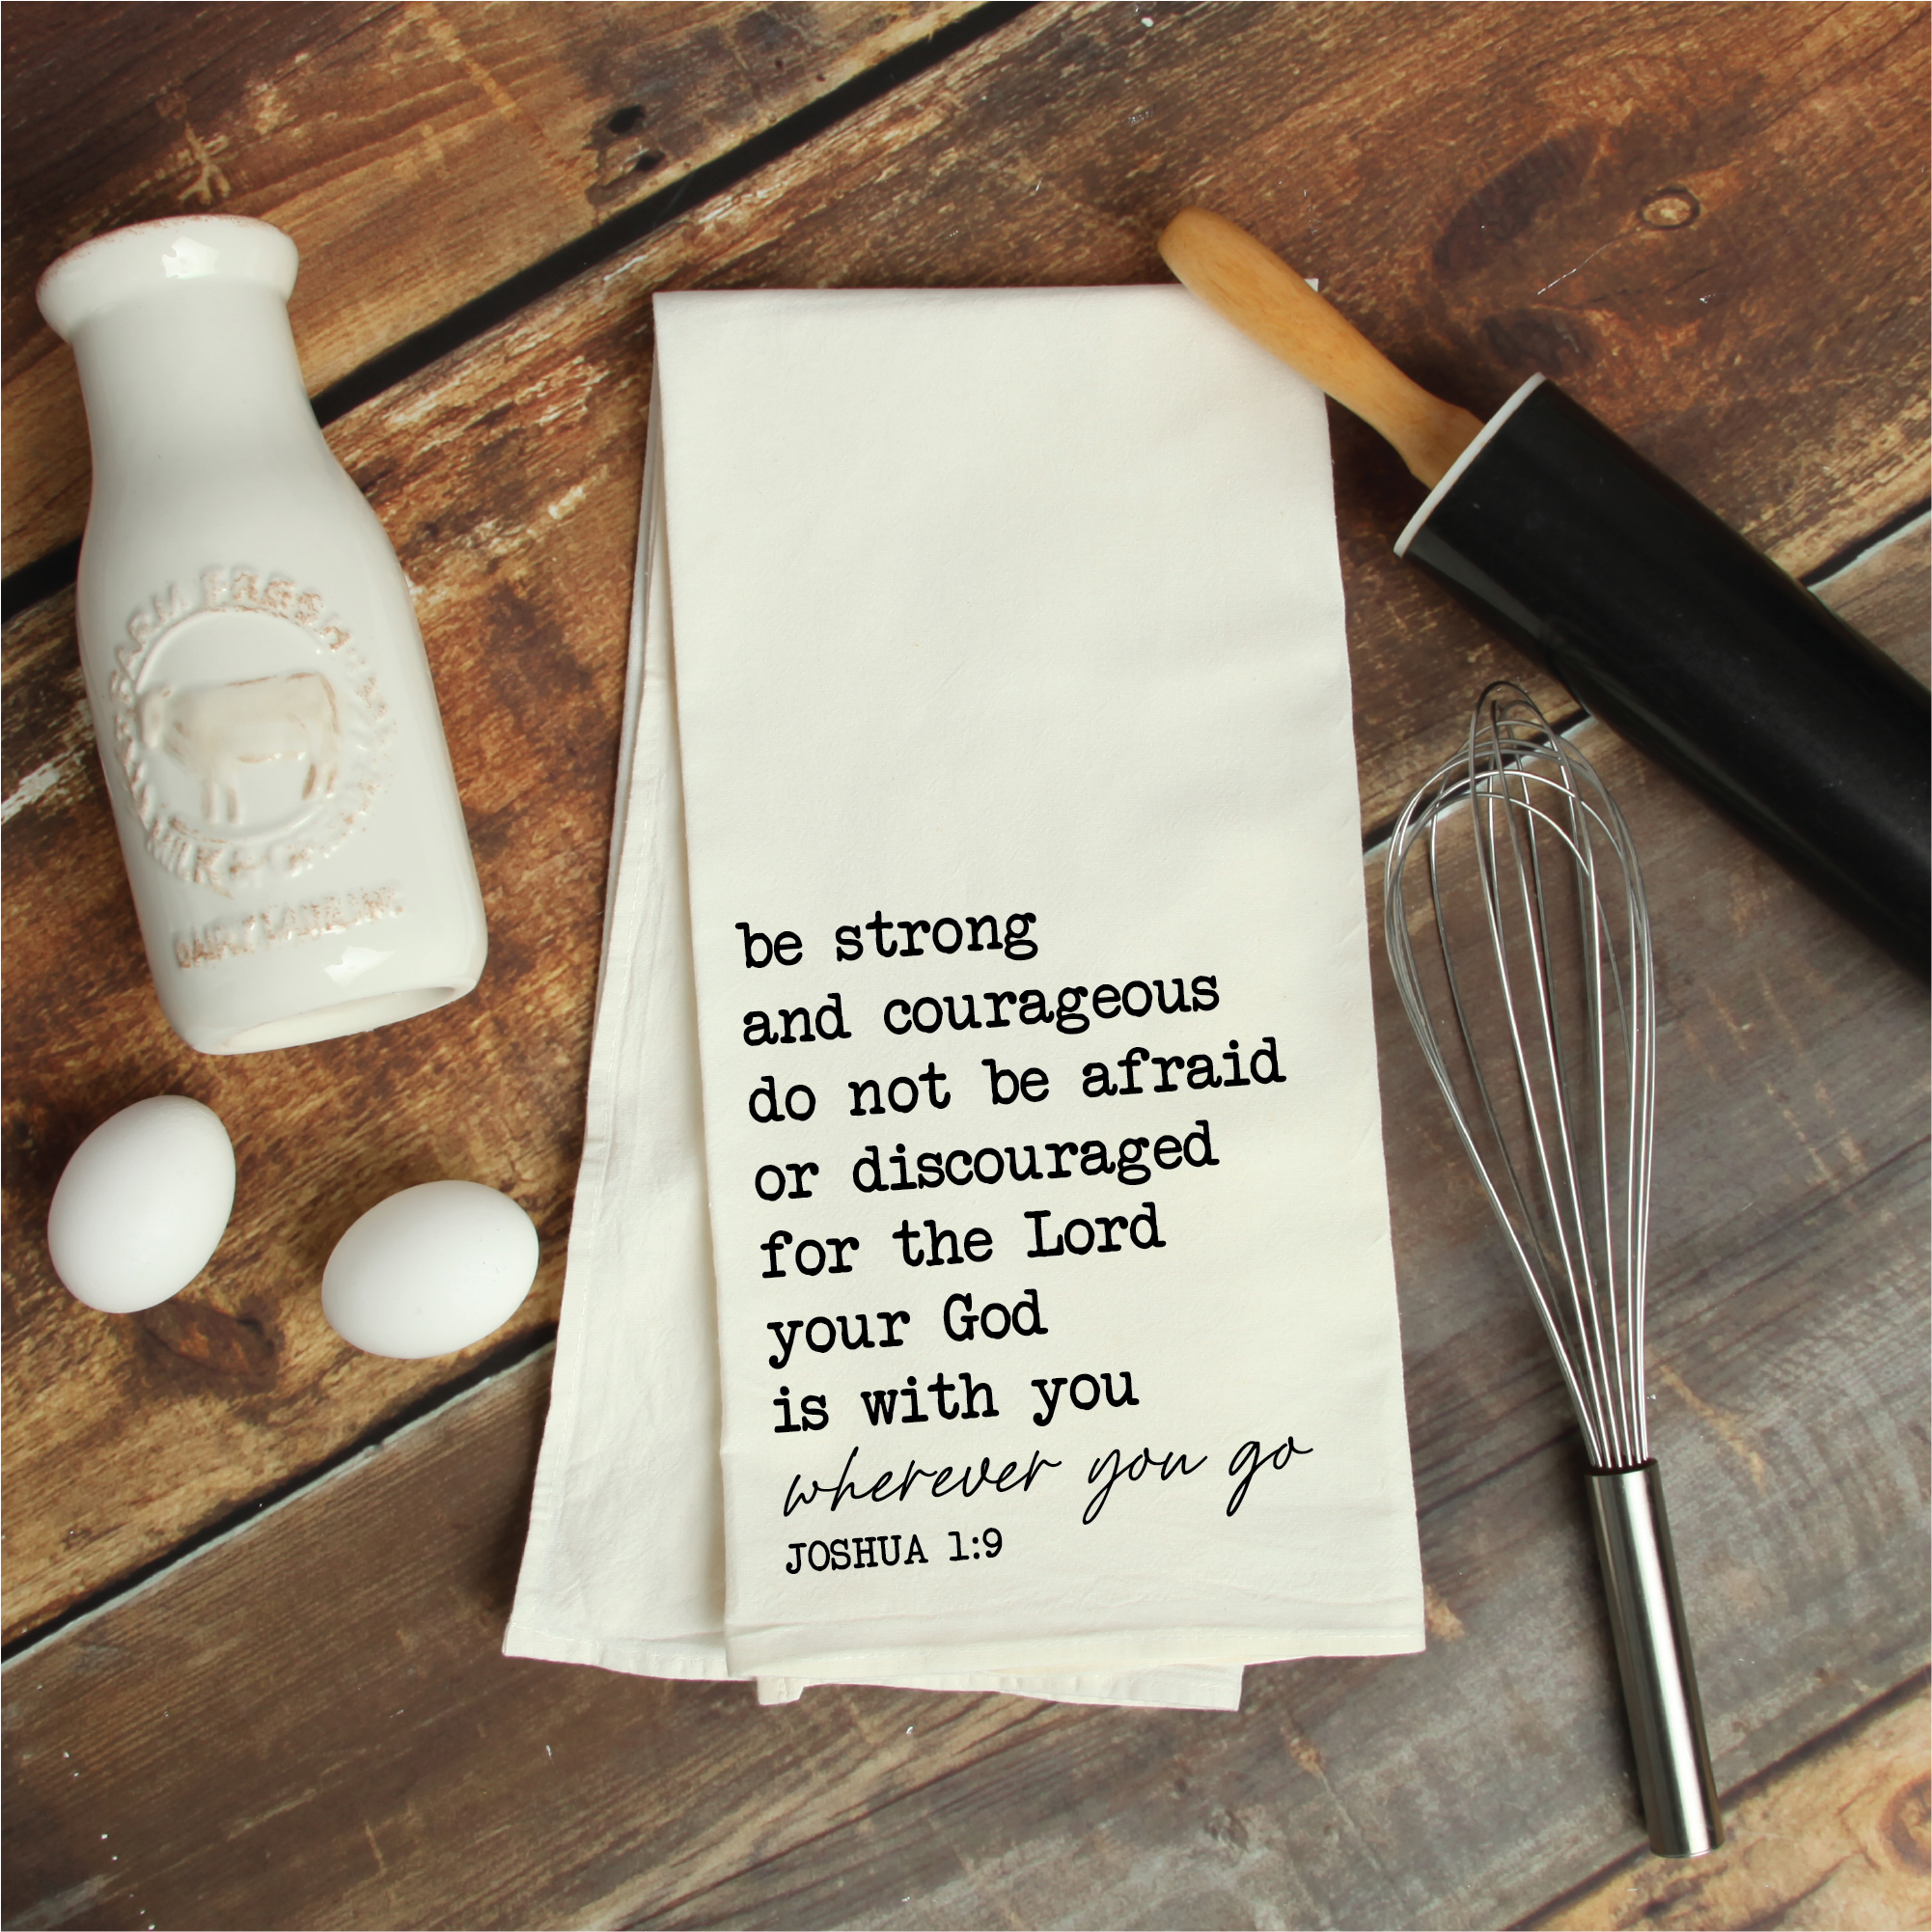 FARM FRESH
MILK &
be strong
and courageous
do not be afraid
or discouraged
for the Lord
your God
is with you
wherever you go
JOSHUA 1:9